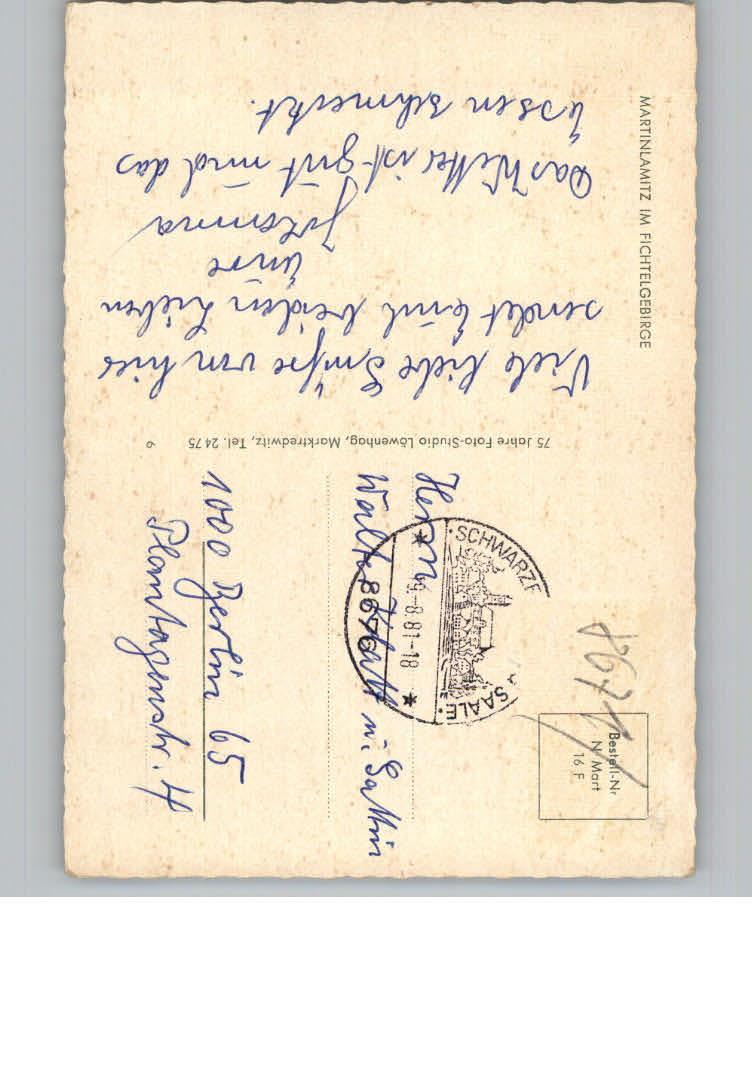 MARTINLAMITZ IM FICHTELGEBIRGE
Viele liebe Grüße von hier
sendet Euch beiden Lieben
Eure
Johanna
Das Wetter ist gut und das
Essen schmeckt.
75 Jahre Foto-Studio Löwenhag, Marktredwitz, Tel. 2475
6
8671
Bestell-Nr
N Mart
16 F
· SCHWARZE
SAALE ·
-8.81-18
8676
Herrn
Walter u. Gattin
1000 Berlin 65
Plantagenstr. 4